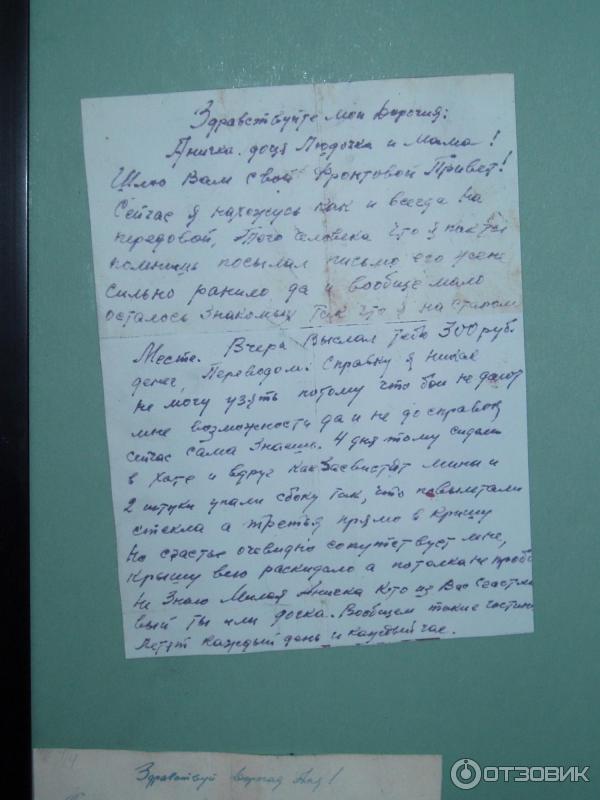 Здравствуйте мои Дорогия:
Аничка доця Людочка и мама!
Шлю Вам свой Фронтовой Привет!
Сейчас я нахожусь как и всегда на
передовой, Того человека что я
помнишь посылал письмо его уже
сильно ранило да и вообще мало
осталось знакомых так что я на старом
Месте. Вчера Выслал тебе 300 руб.
денег, Переводом. Справку я никак
не могу узять потому что бои не дают
мне возможности да и не до справок
сейчас сама Знаешь. 4 дня тому сидели
в хате и вдруг как засвистят мины и
2 штуки упали сбоку так, что повылетали
стекла а третья прямо в крышу
Но счастье очевидно сопутствует мне,
крышу всю раскидало а потолка не проби
Не Знаю Милая Аничка кто из Вас счастли
вый ты или дочка. Вообщем такие гостин
Летят каждый день и каждый час.
Здравствуй дорогая Аня!
ОТЗОВИК